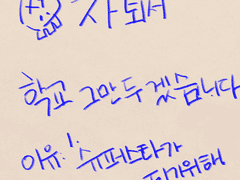 자퇴서
학교 그만두겠습니다
이유: 슈퍼스타가
되기위해